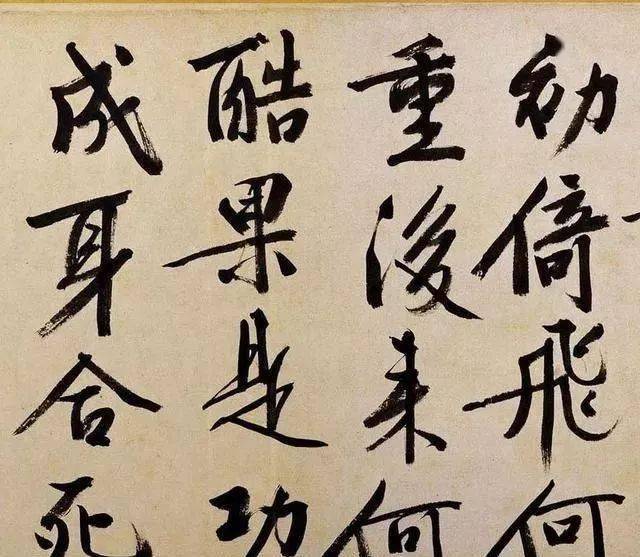 初倚飛何
重後来何
酷果是功
成身合死